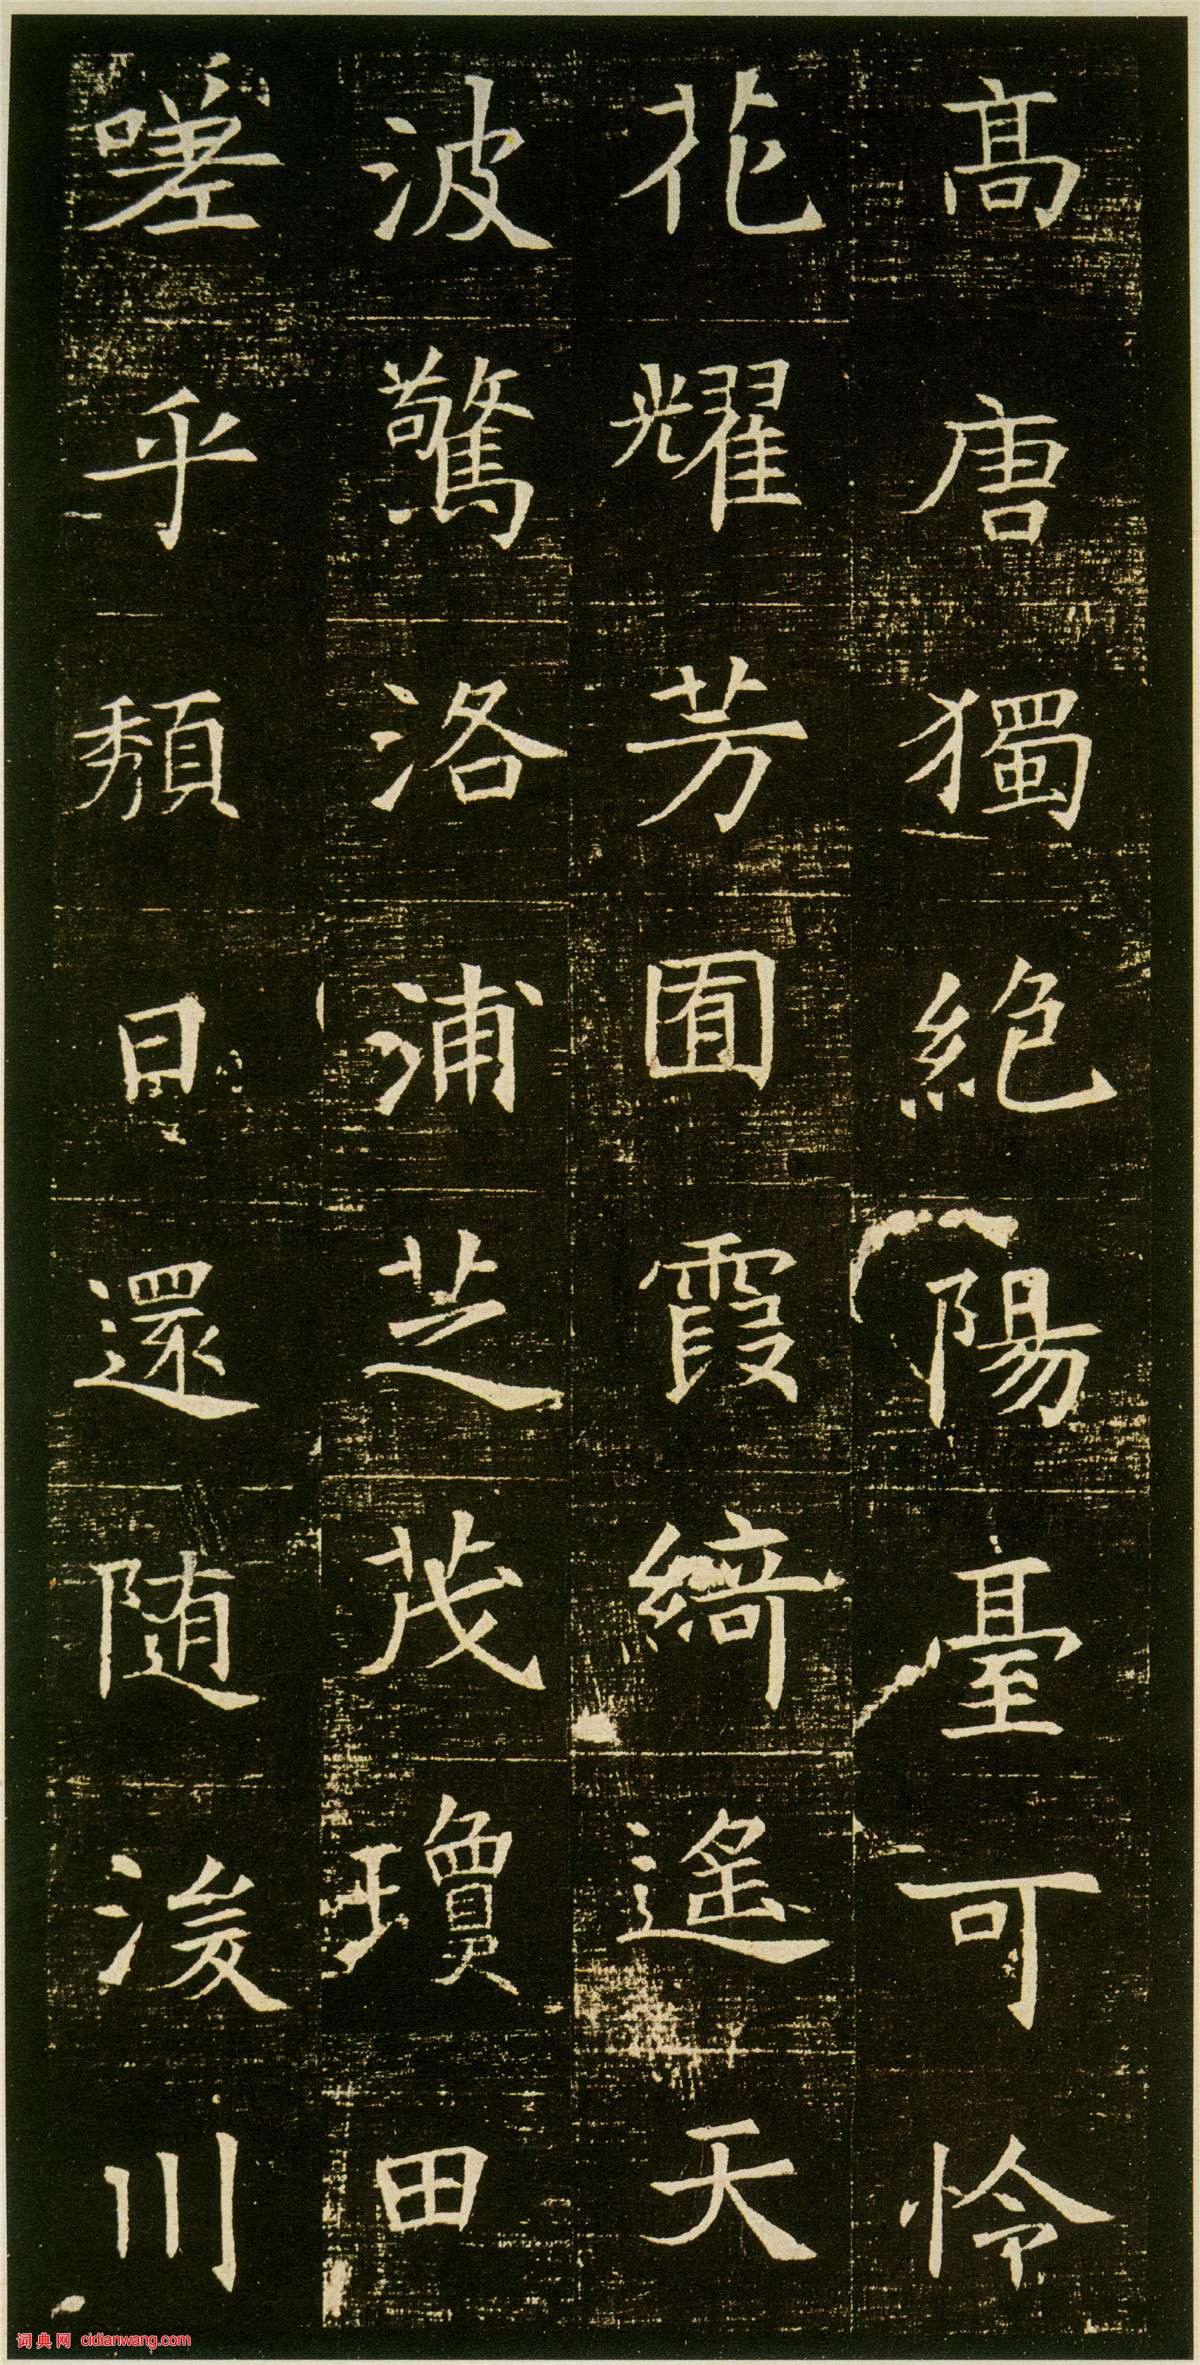 髙唐獨絶陽臺可怜
花耀芳囿霞綺遙天
波驚洛浦芝茂瓊田
嗟乎頽日還随浚川
词典网 cidianwang.com